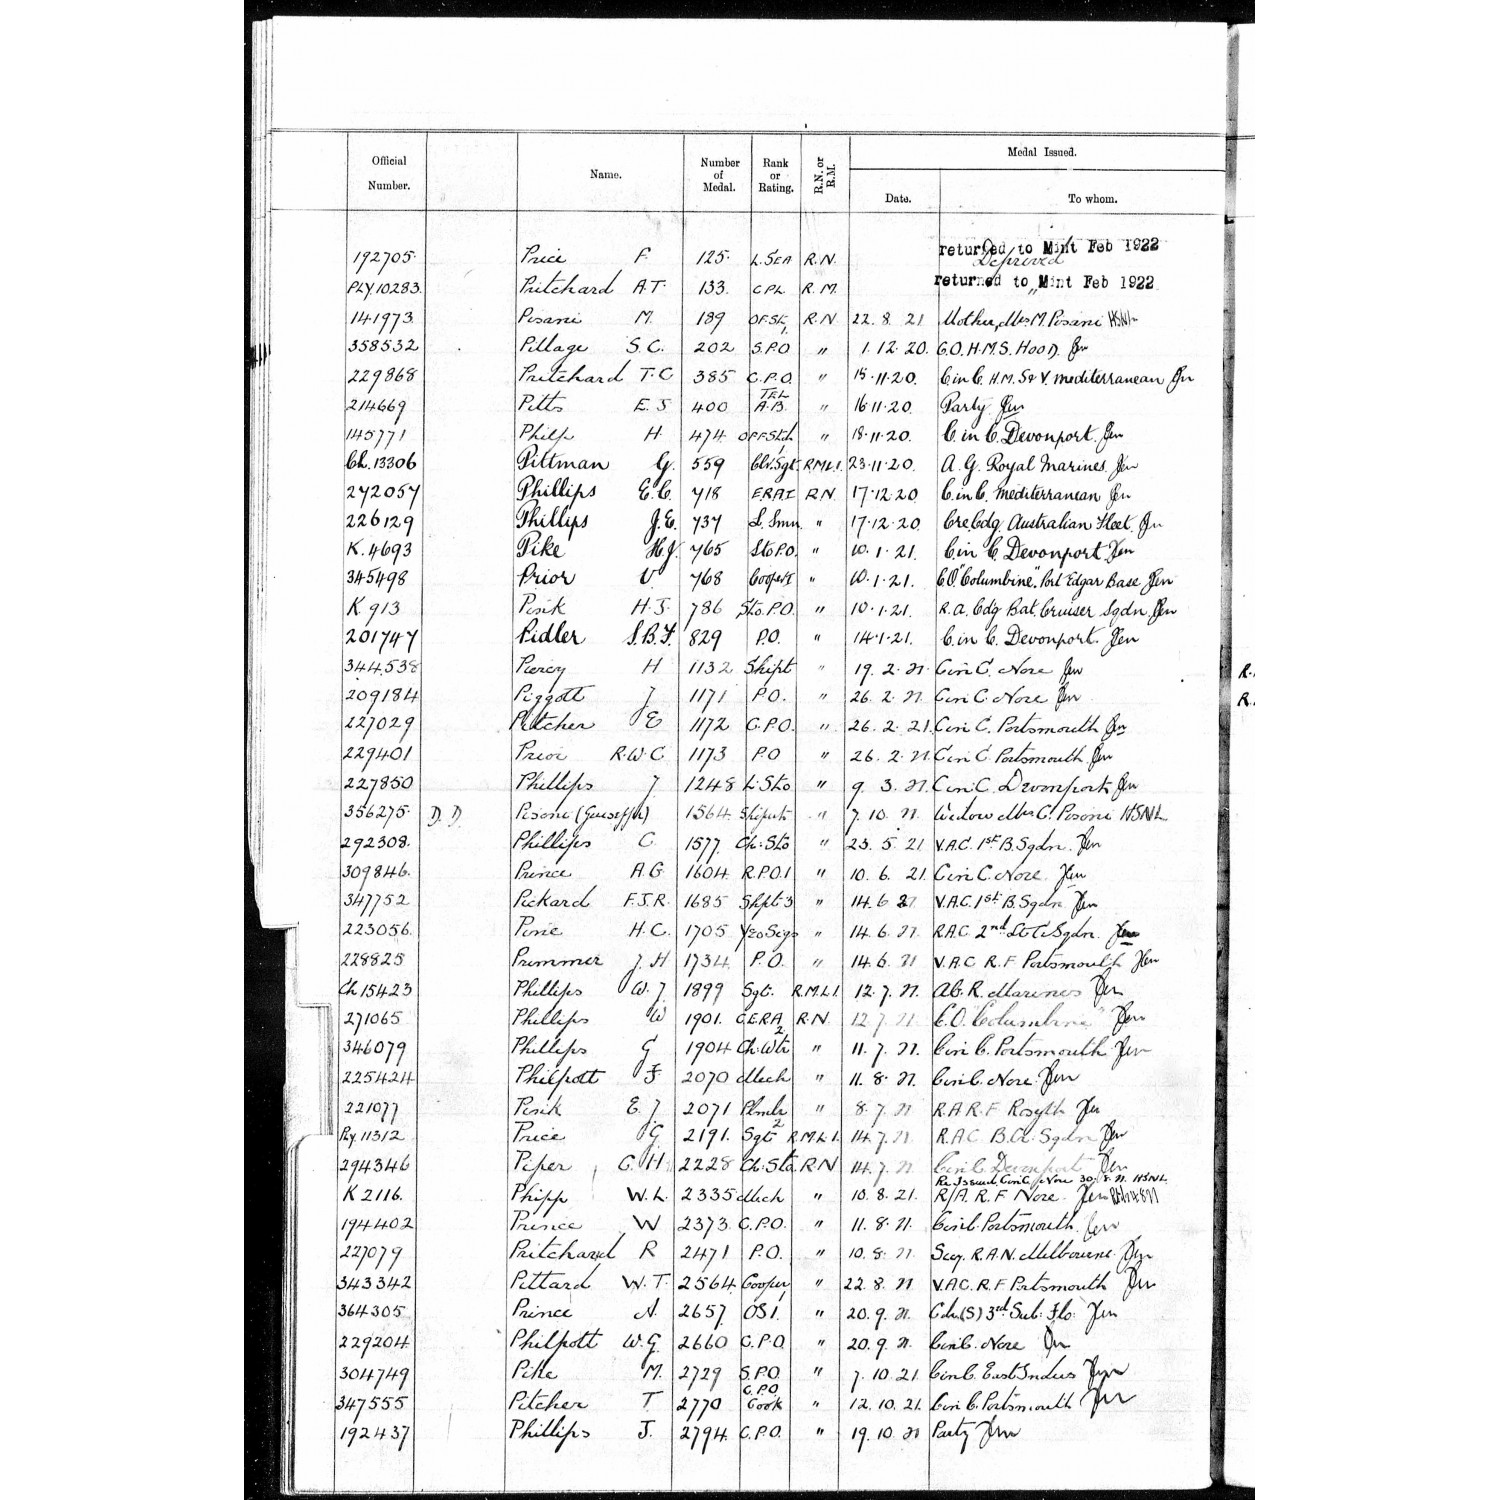 Official Number. Name. Number of Medal. Rank or Rating. R.N. or R.M. Medal Issued. Date. To whom.
192705. Price F. 125. L.SEA R.N. returned to Mint Feb 1922 Deprived
PLY.10283. Pritchard A.T. 133. CPL R.M. returned to Mint Feb 1922 "
141973 Pisani M. 189 OF.St. 1 R.N 22.8.21 Mother, Mrs M. Pisani
358532 Pillage S.C. 202 S.P.O " 1.12.20. C.O. H.M.S. Hood.
229868 Pritchard T.C 385 C.P.O. TEL " 15.11.20. C in C. H.M. S & V. Mediterranean
214669 Pitts E.J 400 A.B. " 16.11.20. Party
145771 Philp H. 474 OFF.Std. 1 " 18.11.20. C. in C. Devonport.
Ch.13306 Pittman G. 559 Clr.Sgt. R.M.L.I. 23.11.20. A.G. Royal Marines.
272057 Phillips E.C. 718 E.R.A.I R.N. 17.12.20 C. in C. Mediterranean
226129 Phillips J.E. 737 L. Smn. " 17.12.20. Cre. Cdg. Australian Fleet.
K.4693 Pike H.J. 765 Sto P.O. " 10.1.21. C. in C. Devonport.
345498 Prior V. 768 " 10.1.21. C.O. "Columbine", Port Edgar Base
K 913 Pink H.J. 786 Sto. P.O. " 10.1.21. R.A. Cdg Bat. Cruiser Sqdn.
201747 Pidler S.B.F. 829 P.O. " 14.1.21. C. in C. Devonport.
344538 Piercy H 1132 Shipt " 19.2.21. C in C. Nore
209184 Piggott J 1171 P.O. " 26.2.21. C in C. Nore
227029 Pitcher E 1172 C.P.O. " 26.2.21. C in C. Portsmouth
229401 Prior R.W.C. 1173 P.O " 26.2.21. C in C. Portsmouth
227850 Phillips J 1248 L. Sto " 9.3.21. C in C. Devonport
356275. D.D. Pisoni (Guiseppi) 1564. " 7.10.21. Widow Mrs C. Pisoni
292308. Phillips C. 1577. Ch: Sto " 23.5.21 V.A.C. 1st B. Sqdn.
309846. Prince A.G. 1604. R.P.O.1 " 10.6.21. C in C. Nore.
347752 Pickard F.J.R. 1685 Shpt 3 " 14.6.21 V.A.C. 1st B. Sqdn.
223056. Pirie H.C. 1705 Yeo Sigs " 14.6.21. R.A.C. 2nd Lt C Sqdn.
228825 Primmer J.H 1734. P.O. " 14.6.21 V.A.C R.F. Portsmouth
Ch 15423 Phillips W.J 1899 Sgt. R.M.L.I. 12.7.21. A.G. R. Marines
271065 Phillips W 1901. C.E.R.A 2 R.N. 12.7.21. C.O. "Columbine"
346079 Phillips G 1904 Ch. Wtr " 11.7.21. C in C. Portsmouth
225424 Philpott F 2070 Mech " 11.8.21. C in C. Nore
221077 Pink E.J 2071 Plmbr " 8.7.21 R.A R.F Rosyth
Ply.11312 Price G 2191. Sgt 2 R.M.L.I. 14.7.21. R.A.C B. Cr. Sqdn
294346 Piper C.H 2228 Ch: Sto. R.N 14.7.21. C in C. Devonport
Re Issued C in C. Nore 30.8.21.
K 2116. Phipp W.L. 2335 Mech " 10.8.21. R/A. R.F Nore.
194402 Prince W 2373. C.P.O. " 11.8.21. C in C. Portsmouth
227079 Pritchard R 2471 P.O. " 10.8.21 Secy. R.A.N. Melbourne
343342 Pittard W.T. 2564. Cooper, " 22.8.21 V.A.C. R.F. Portsmouth
364305. Prince A. 2657 OS 1, " 20.9.21. Cdr (S) 3rd Sub. Flo.
229204 Philpott W.G. 2660 C.P.O. " 20.9.21. C in C. Nore
304749 Pike M. 2729 S.P.O. " 7.10.21. C in C. East Indies
347555 Pitcher T. 2770 C.P.O. Cook " 12.10.21. C in C. Portsmouth
192437 Phillips J. 2794. C.P.O. " 19.10.21 Party